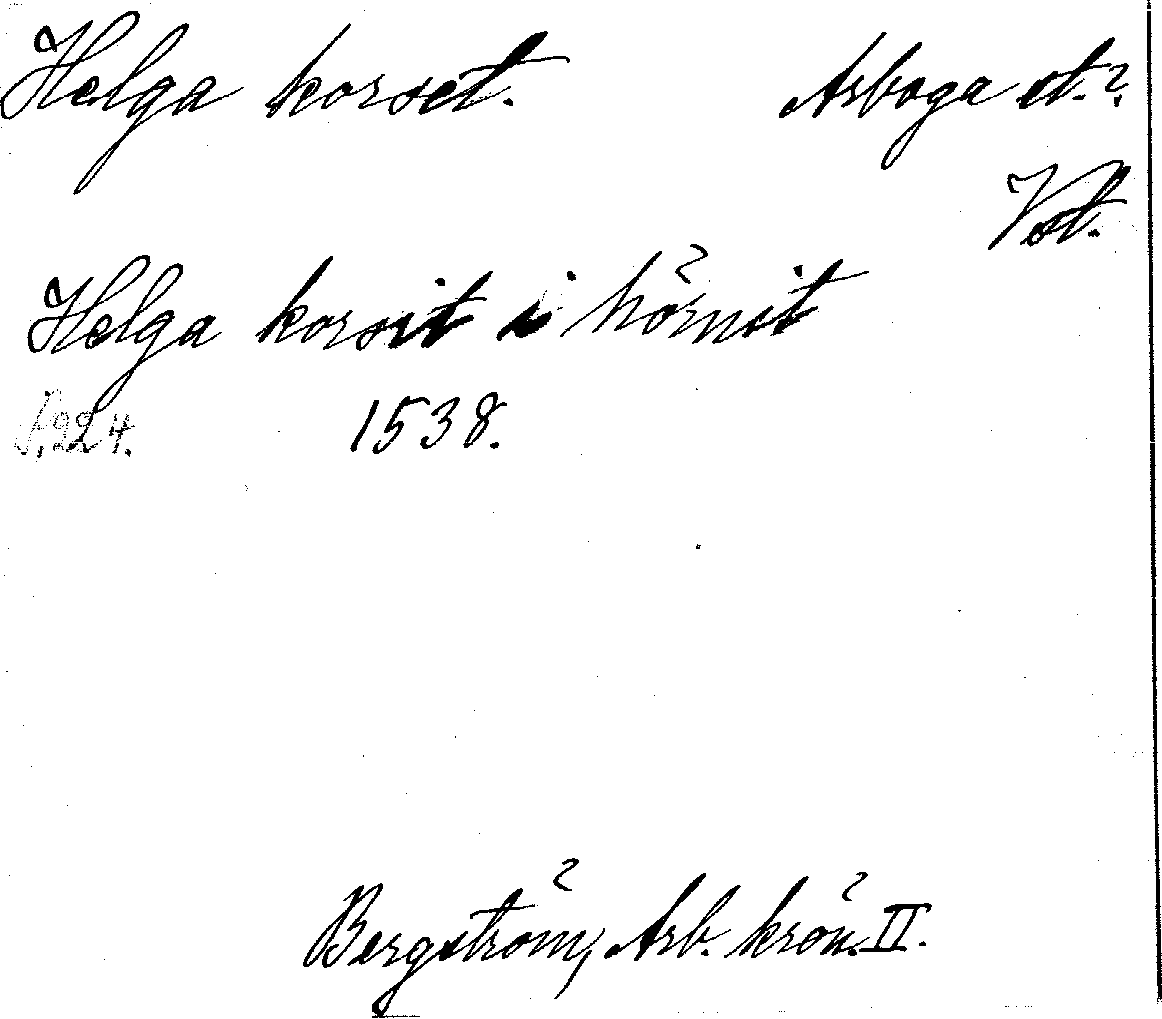 Helga korset. Arboga st.?
Vst.
Helga korsit i hörnit
S. 224. 1538.
Bergström, Arb. krön. II.